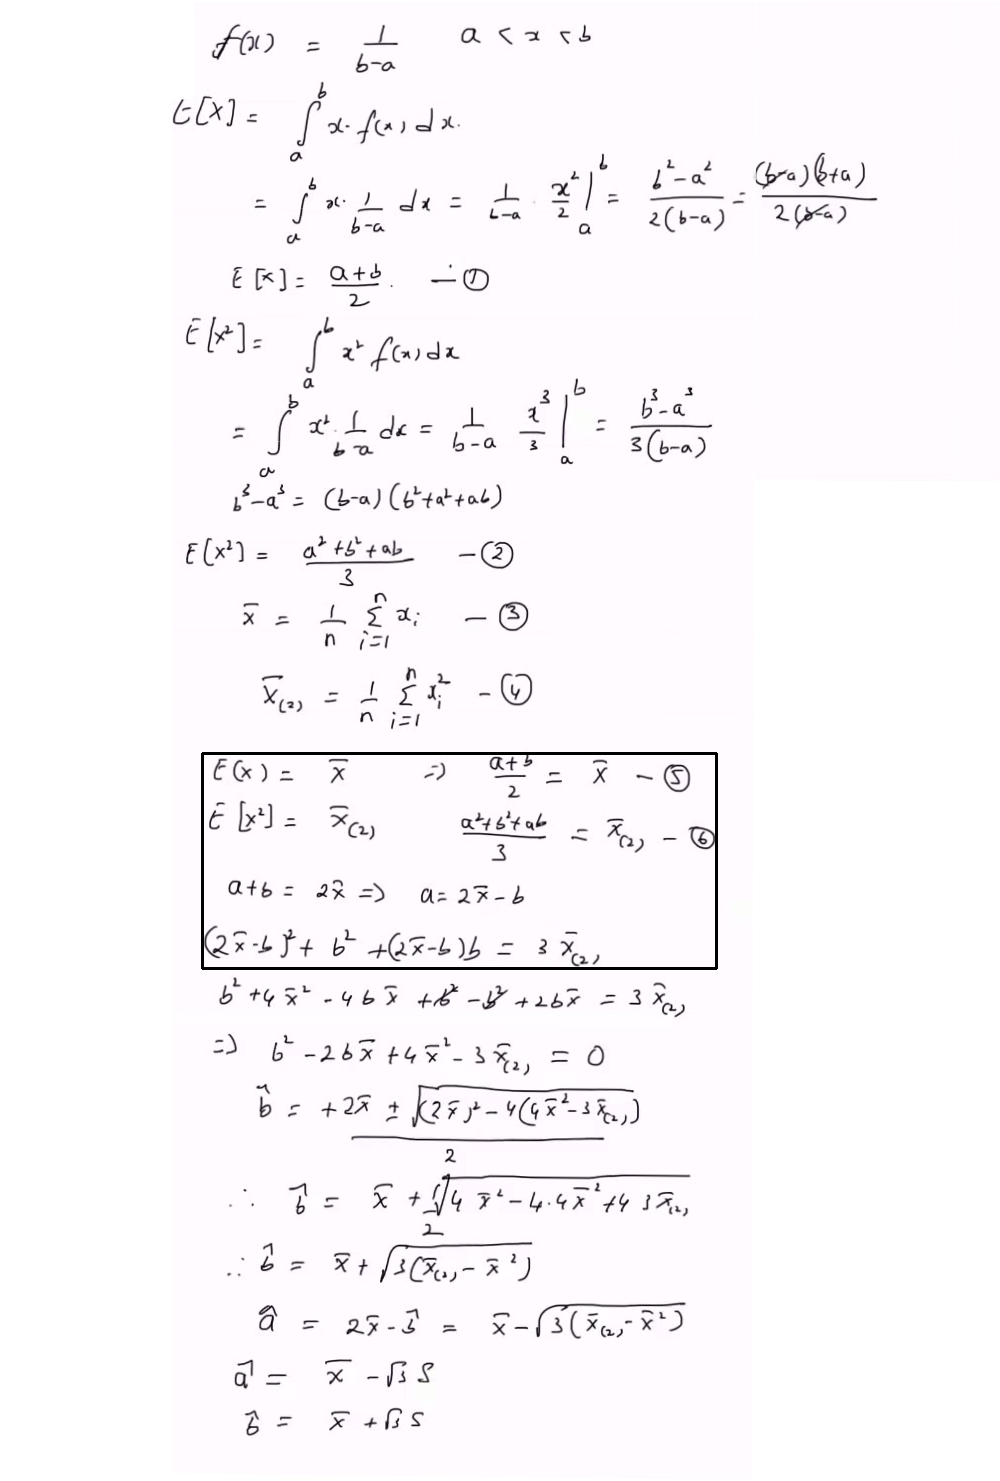 f(x) = 1/(b-a) a < x < b
E[X] = ∫_a^b x. f(x) dx.
= ∫_a^b x. 1/(b-a) dx = 1/(b-a) . x²/2 |_a^b = (b²-a²)/(2(b-a)) = (b-a)(b+a)/(2(b-a))
E[x] = (a+b)/2 . — ①
E[x²] = ∫_a^b x² f(x) dx
= ∫_a^b x². 1/(b-a) dx = 1/(b-a) x³/3 |_a^b = (b³-a³)/(3(b-a))
b³-a³ = (b-a)(b²+a²+ab)
E[x²] = (a²+b²+ab)/3 — ②
x̄ = 1/n Σ_{i=1}^n x_i — ③
X̄_(2) = 1/n Σ_{i=1}^n x_i² — ④
E(x) = x̄ => (a+b)/2 = x̄ — ⑤
E[x²] = x̄_(2) (a²+b²+ab)/3 = x̄_(2) — ⑥
a+b = 2x̄ => a = 2x̄-b
(2x̄-b)² + b² + (2x̄-b)b = 3 x̄_(2)
b² + 4x̄² - 4bx̄ + b² - b² + 2bx̄ = 3x̄_(2)
=> b² - 2bx̄ + 4x̄² - 3x̄_(2) = 0
b̂ = (+2x̄ ± √((2x̄)² - 4(4x̄² - 3x̄_(2))))/2
∴ b̂ = x̄ + √(4x̄² - 4.4x̄² + 4 3x̄_(2))/2
∴ b̂ = x̄ + √(3(x̄_(2) - x̄²))
â = 2x̄ - b̂ = x̄ - √(3(x̄_(2) - x̄²))
â = x̄ - √3 S
b̂ = x̄ + √3 S